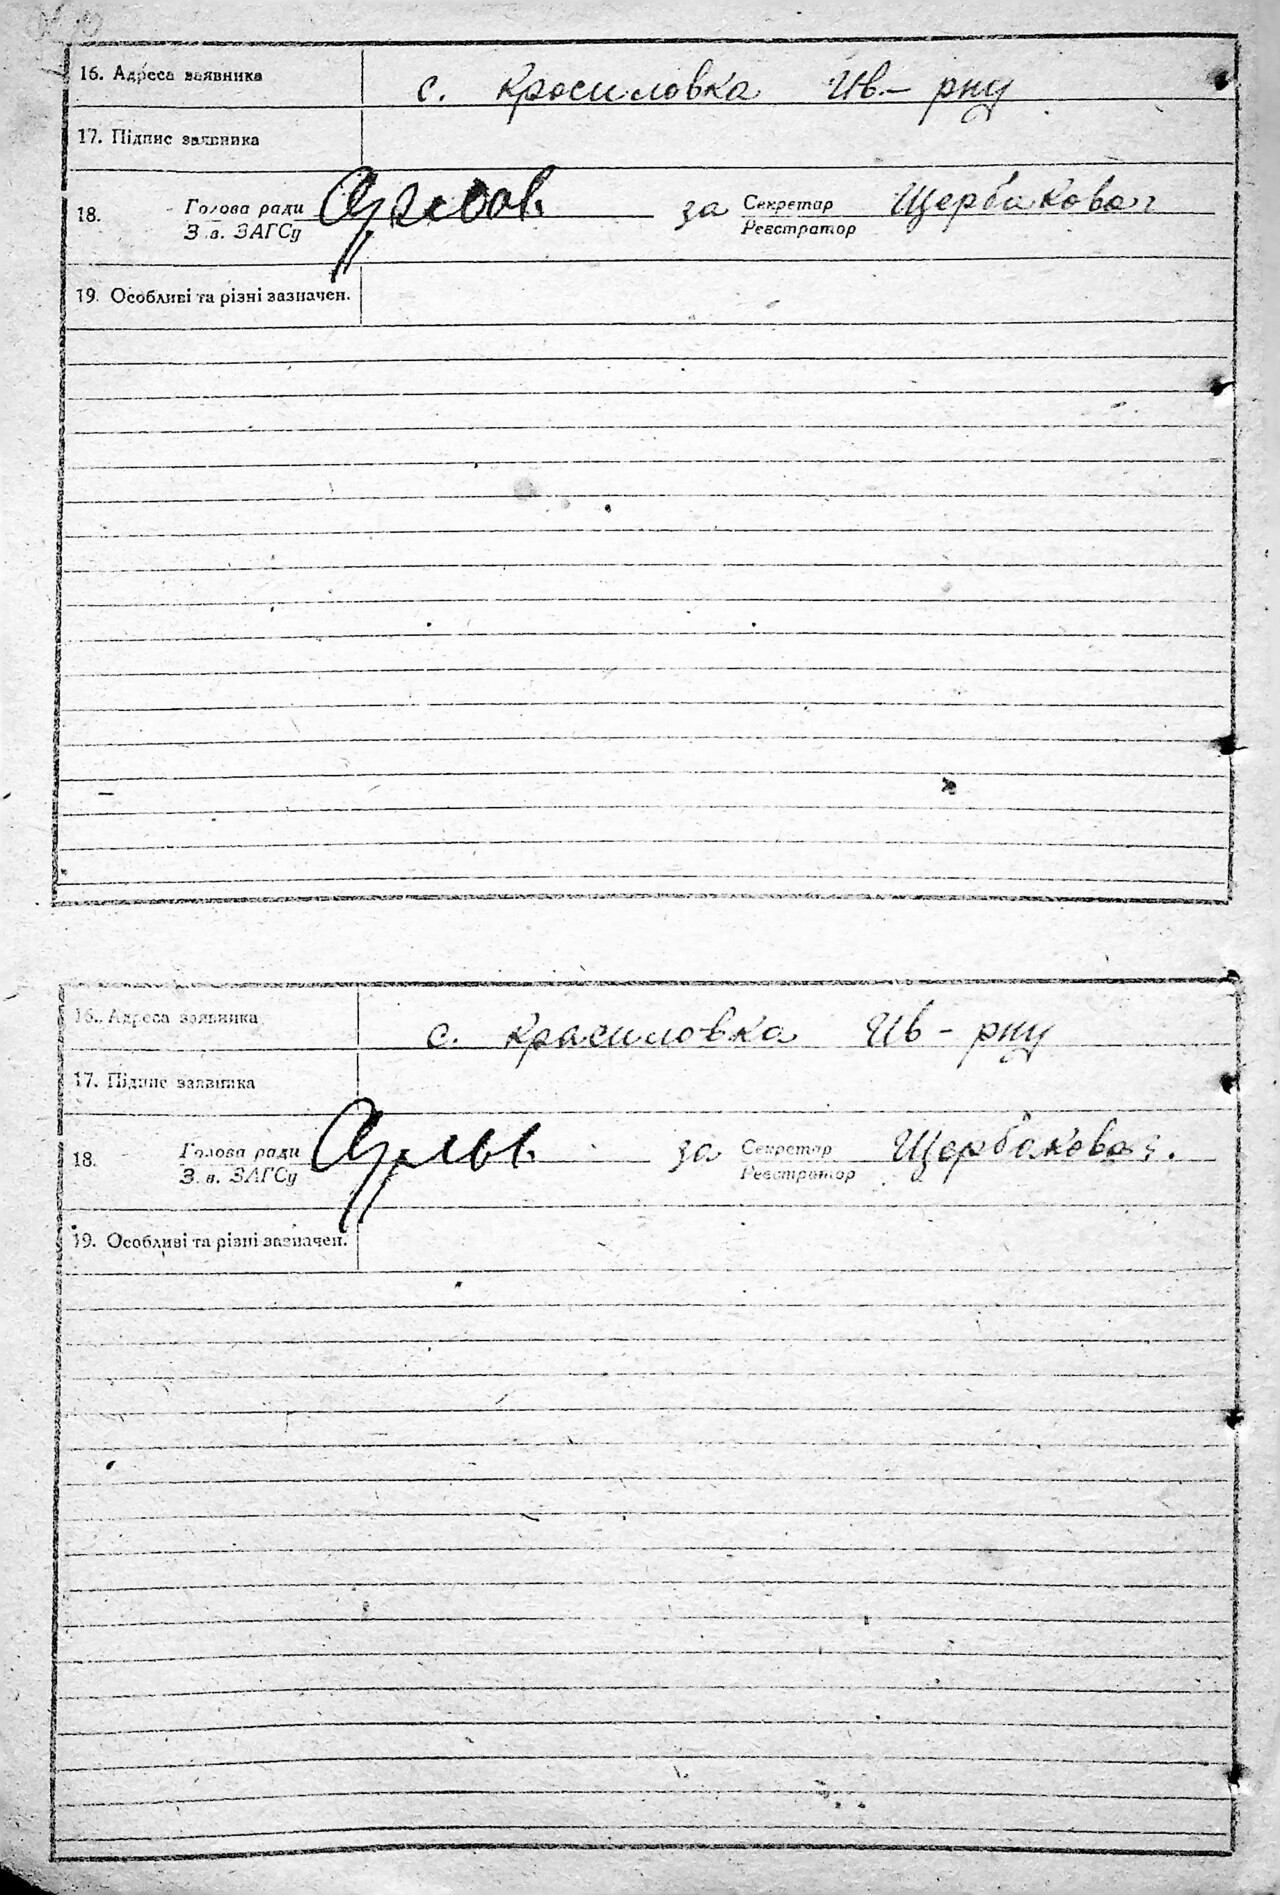 16. Адреса заявника с. Красиловка Ив.- рну
17. Підпис заявника
18. Голова ради за Секретар Щербакова
З.в. ЗАГСу Реєстратор
19. Особливі та різні зазначен.
16. Адреса заявника с. Красиловка Ив - рну
17. Підпис заявника
18. Голова ради за Секретар Щербакова.
З.в. ЗАГСу Реєстратор
19. Особливі та різні зазначен.